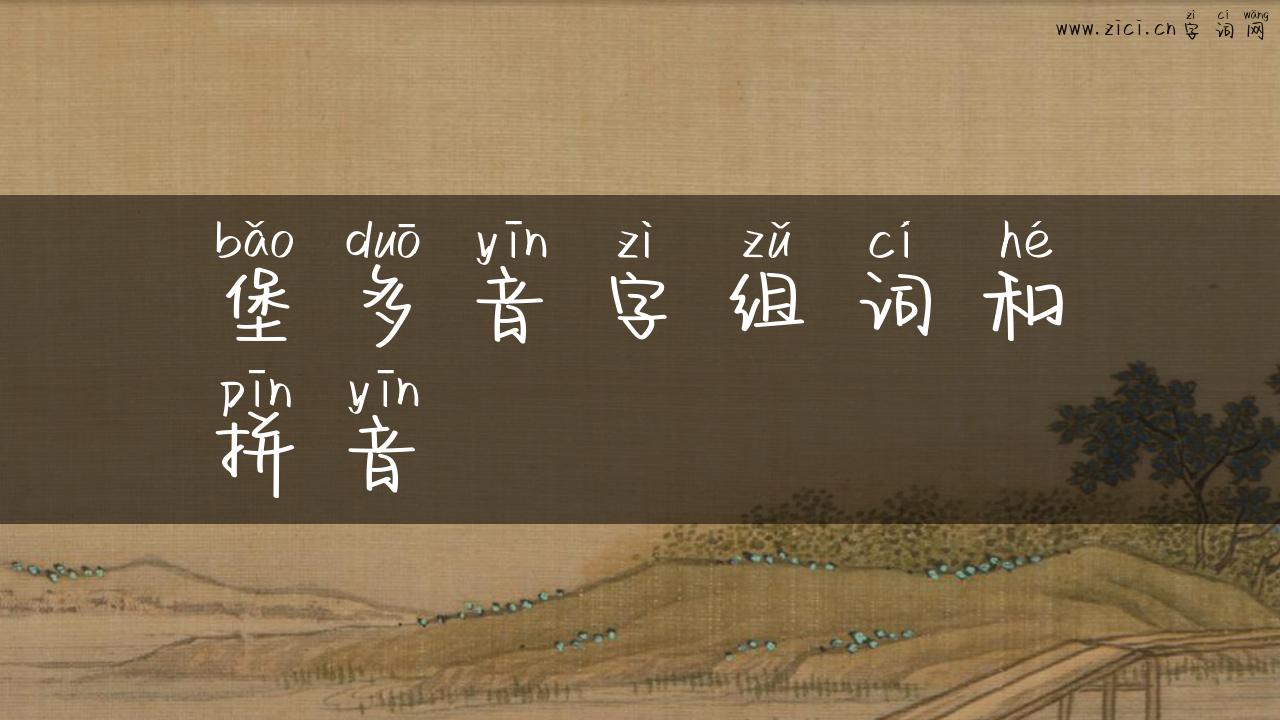 zì cí wǎng
www.zici.cn字词网
bǎo duō yīn zì zǔ cí hé
堡多音字组词和
pīn yīn
拼音